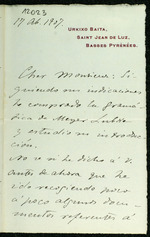 12023
17. Ab. 1917
URKIXO BAITA,
SAINT JEAN DE LUZ,
BASSES PYRÉNÉES.
Cher Monsieur: Si-
guiendo su indicacion
he comprado la gramá-
tica de Meyer Lubke
y estudio su introduc-
ción.
No se si he dicho á V.
antes de ahora que he
ido recogiendo poco
á poco algunos docu-
mentos referentes á